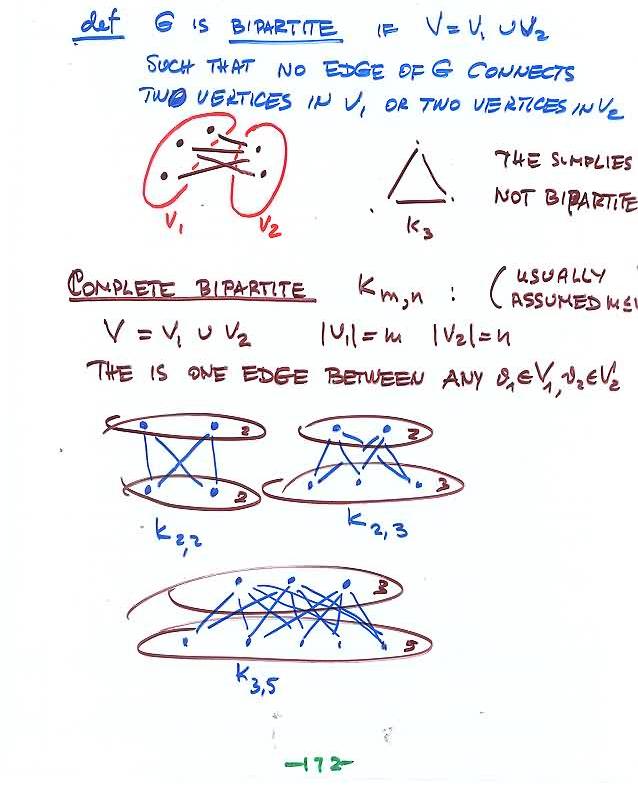 def G IS BIPARTITE IF V = V₁ ∪ V₂
SUCH THAT NO EDGE OF G CONNECTS
TWO VERTICES IN V₁ OR TWO VERTICES IN V₂
V₁ V₂
K₃
THE SIMPLIES
NOT BIPARTITE
COMPLETE BIPARTITE K_{m,n} : (USUALLY
ASSUMED m≤
V = V₁ ∪ V₂ |V₁| = m |V₂| = n
THE IS ONE EDGE BETWEEN ANY v₁∈V₁, v₂∈V₂
2 2
2 3
K_{2,2} K_{2,3}
3
5
K_{3,5}
-172-